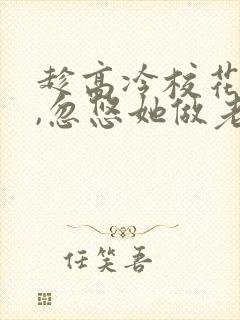 趁高冷校花
,忽悠她做老
任笑吾